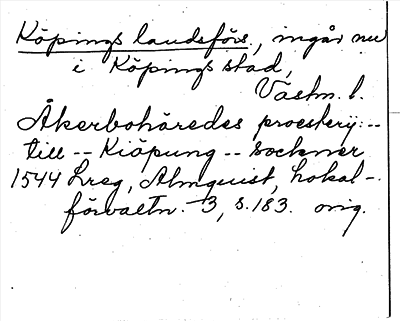 Köpings landsförs., ingår nu
i Köpings stad,
Västm. l.
Åkerbohäredes proesterij:--
till -- Kiöpung -- sockner
1544 Lreg, Almquist, Lokal-
förvaltn. 3, s. 183. orig.